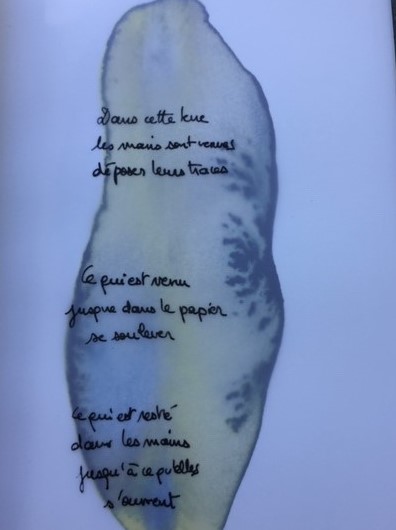 Dans cette
les mains sont venues
déposer leurs traces
Ce qui est venu
jusque dans le papier
se soulever
Ce qui est resté
dans les mains
jusqu'à ce qu'elles
s'ouvrent